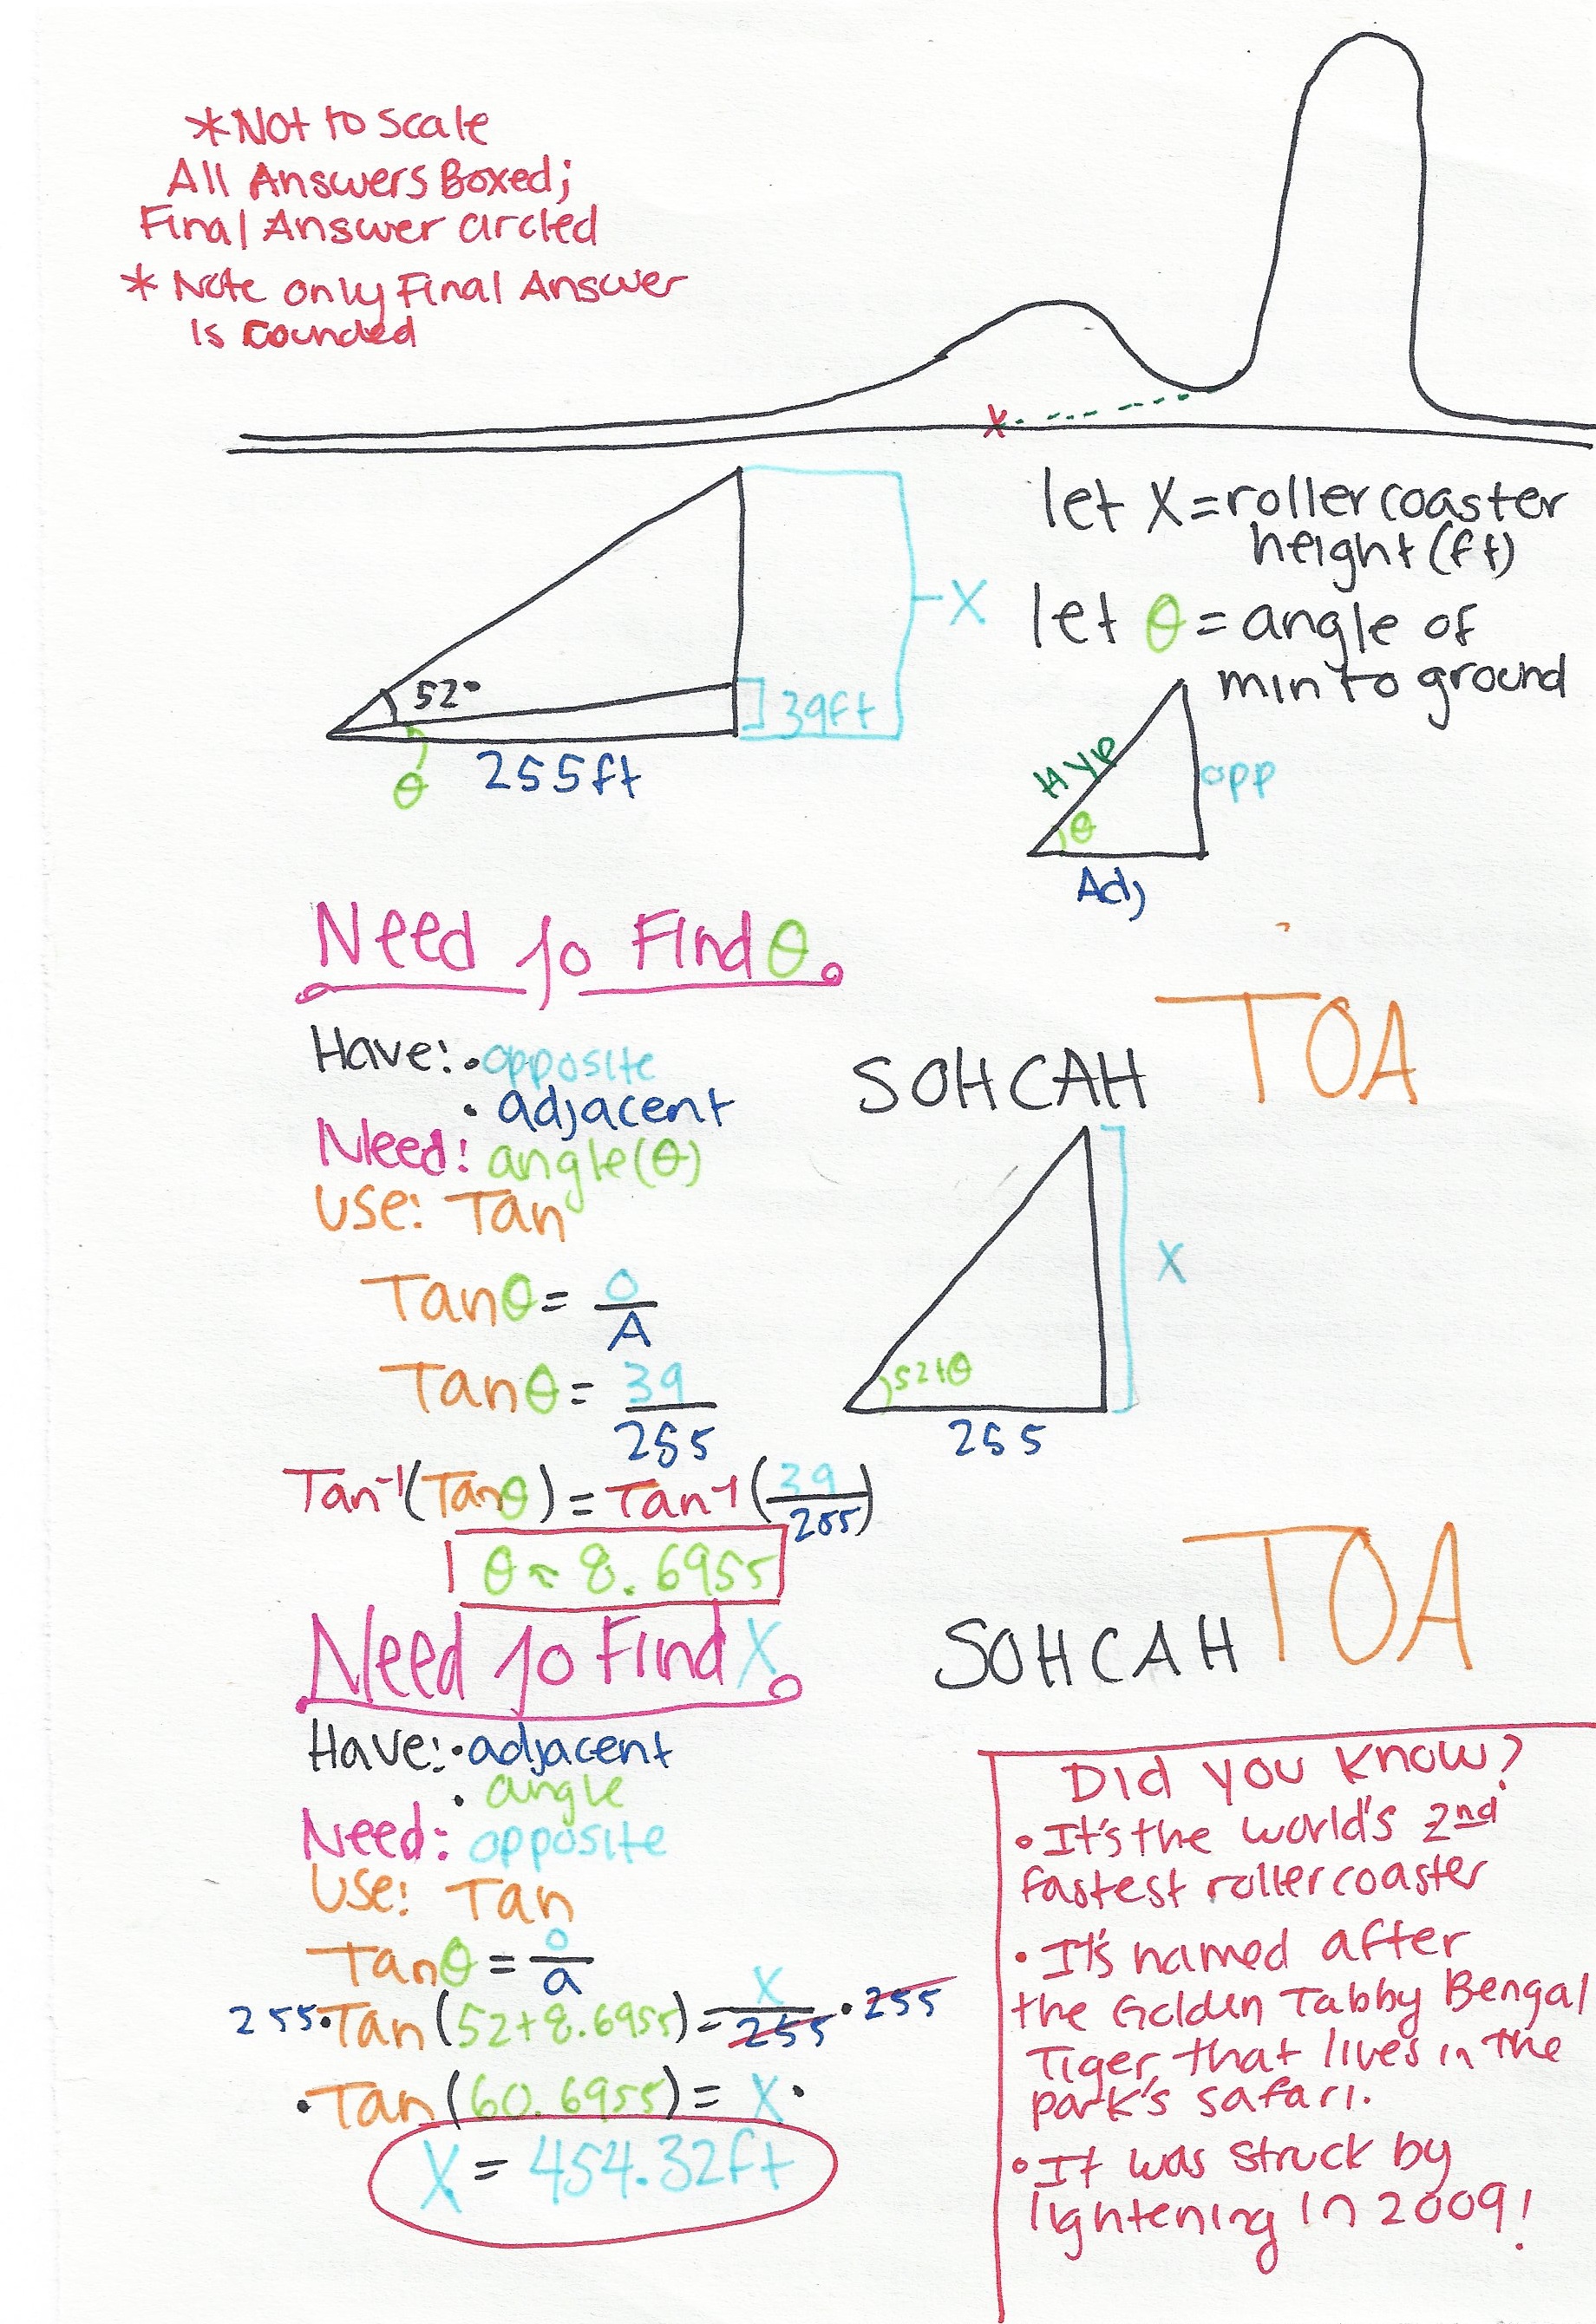 *Not to scale
All Answers Boxed;
Final Answer circled
* Note only Final Answer
Is rounded
X
let X = roller coaster
height (ft)
let θ = angle of
min to ground
X
52°
39ft
θ
255ft
Hyp
opp
θ
Adj
Need to Find θ
Have: • opposite
• adjacent
Need: angle (θ)
Use: Tan
SOHCAH TOA
Tanθ = O/A
Tanθ = 39/255
Tan⁻¹(Tanθ) = Tan⁻¹(39/255)
θ ≈ 8.6955
X
52+θ
255
Need to Find X
SOHCAH TOA
Have: • adjacent
• angle
Need: opposite
Use: Tan
Tanθ = o/a
255•Tan(52+8.6955) = X/255 • 255
•Tan(60.6955) = X•
X = 454.32ft
Did you know?
• It's the world's 2nd
fastest roller coaster
• It's named after
the Golden Tabby Bengal
Tiger, that lives in the
park's safari.
• It was struck by
lightening in 2009!